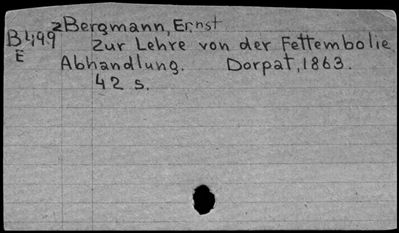 zBergmann, Ernst
B499 Zur Lehre von der Fettembolie
E Abhandlung. Dorpat, 1863.
42 s.